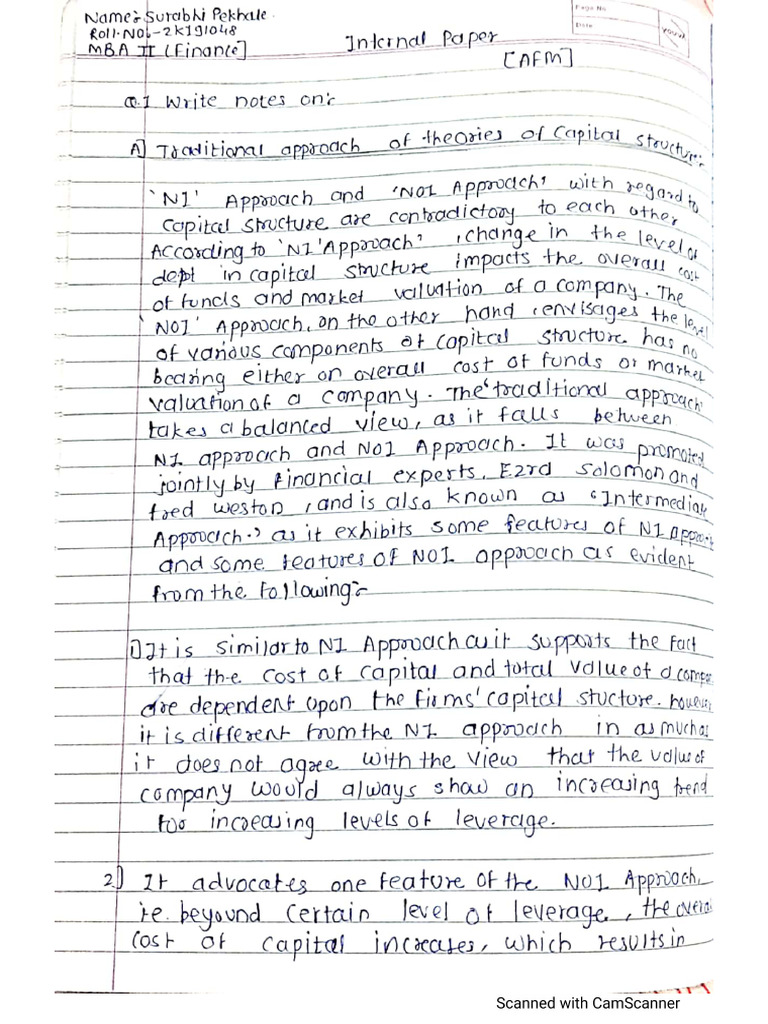 Name:- Surabhi Pekhale
Roll.No.-2K191048
MBA II (Finance]
Internal Paper
[AFM]
Page No
Date
YOUVA
Q.1 Write notes on:-
A] Traditional approach of theories of Capital structure:-
'NI' Approach and 'NOI Approach' with regard to
capital structure are contradictory to each other
According to 'NI' Approach' , change in the level of
dept in capital structure impacts the overall cost
of funds and market valuation of a company. The
'NOI' Approach, on the other hand, envisages the level
of various components of capital structure has no
bearing either on overall cost of funds or market
valuation of a company. The 'traditional approach
takes a balanced view, as it falls between
NI approach and NOI Approach. It was promoted
jointly by financial experts, Ezra Solomon and
fred weston, and is also known as 'Intermediate
Approach.' as it exhibits some features of NI approch
and some features of NOI approach as evident
from the following:-
1) It is similar to NI Approach as it supports the fact
that the cost of capital and total value of a compa
are dependent upon the firms' capital stucture. however
it is different from the NI approach in as much as
it does not agree with the view that the value of
company would always show an increasing trend
too increasing levels of leverage.
2) It advocates one feature of the NOI Approach,
ie. beyound certain level of leverage, the overal
cost of capital increases, which results in
Scanned with CamScanner